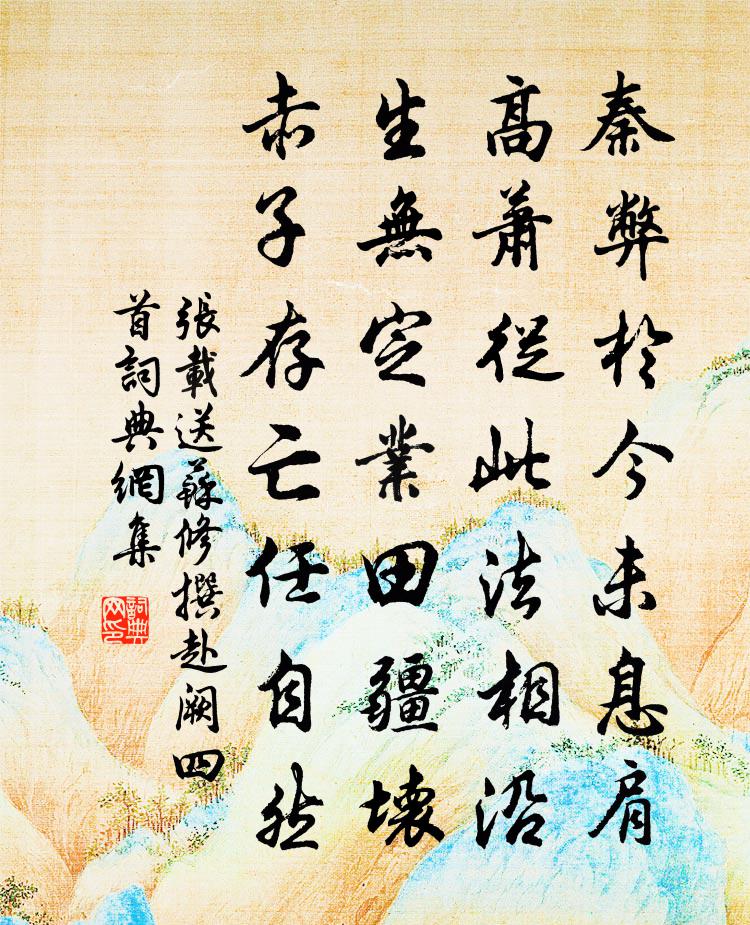 秦弊於今未息肩
高蕭從此法相沿
生無定業田疆壞
赤子存亡任自然
張載送蘇修撰赴闕四
首詞典網集
詞典
网印